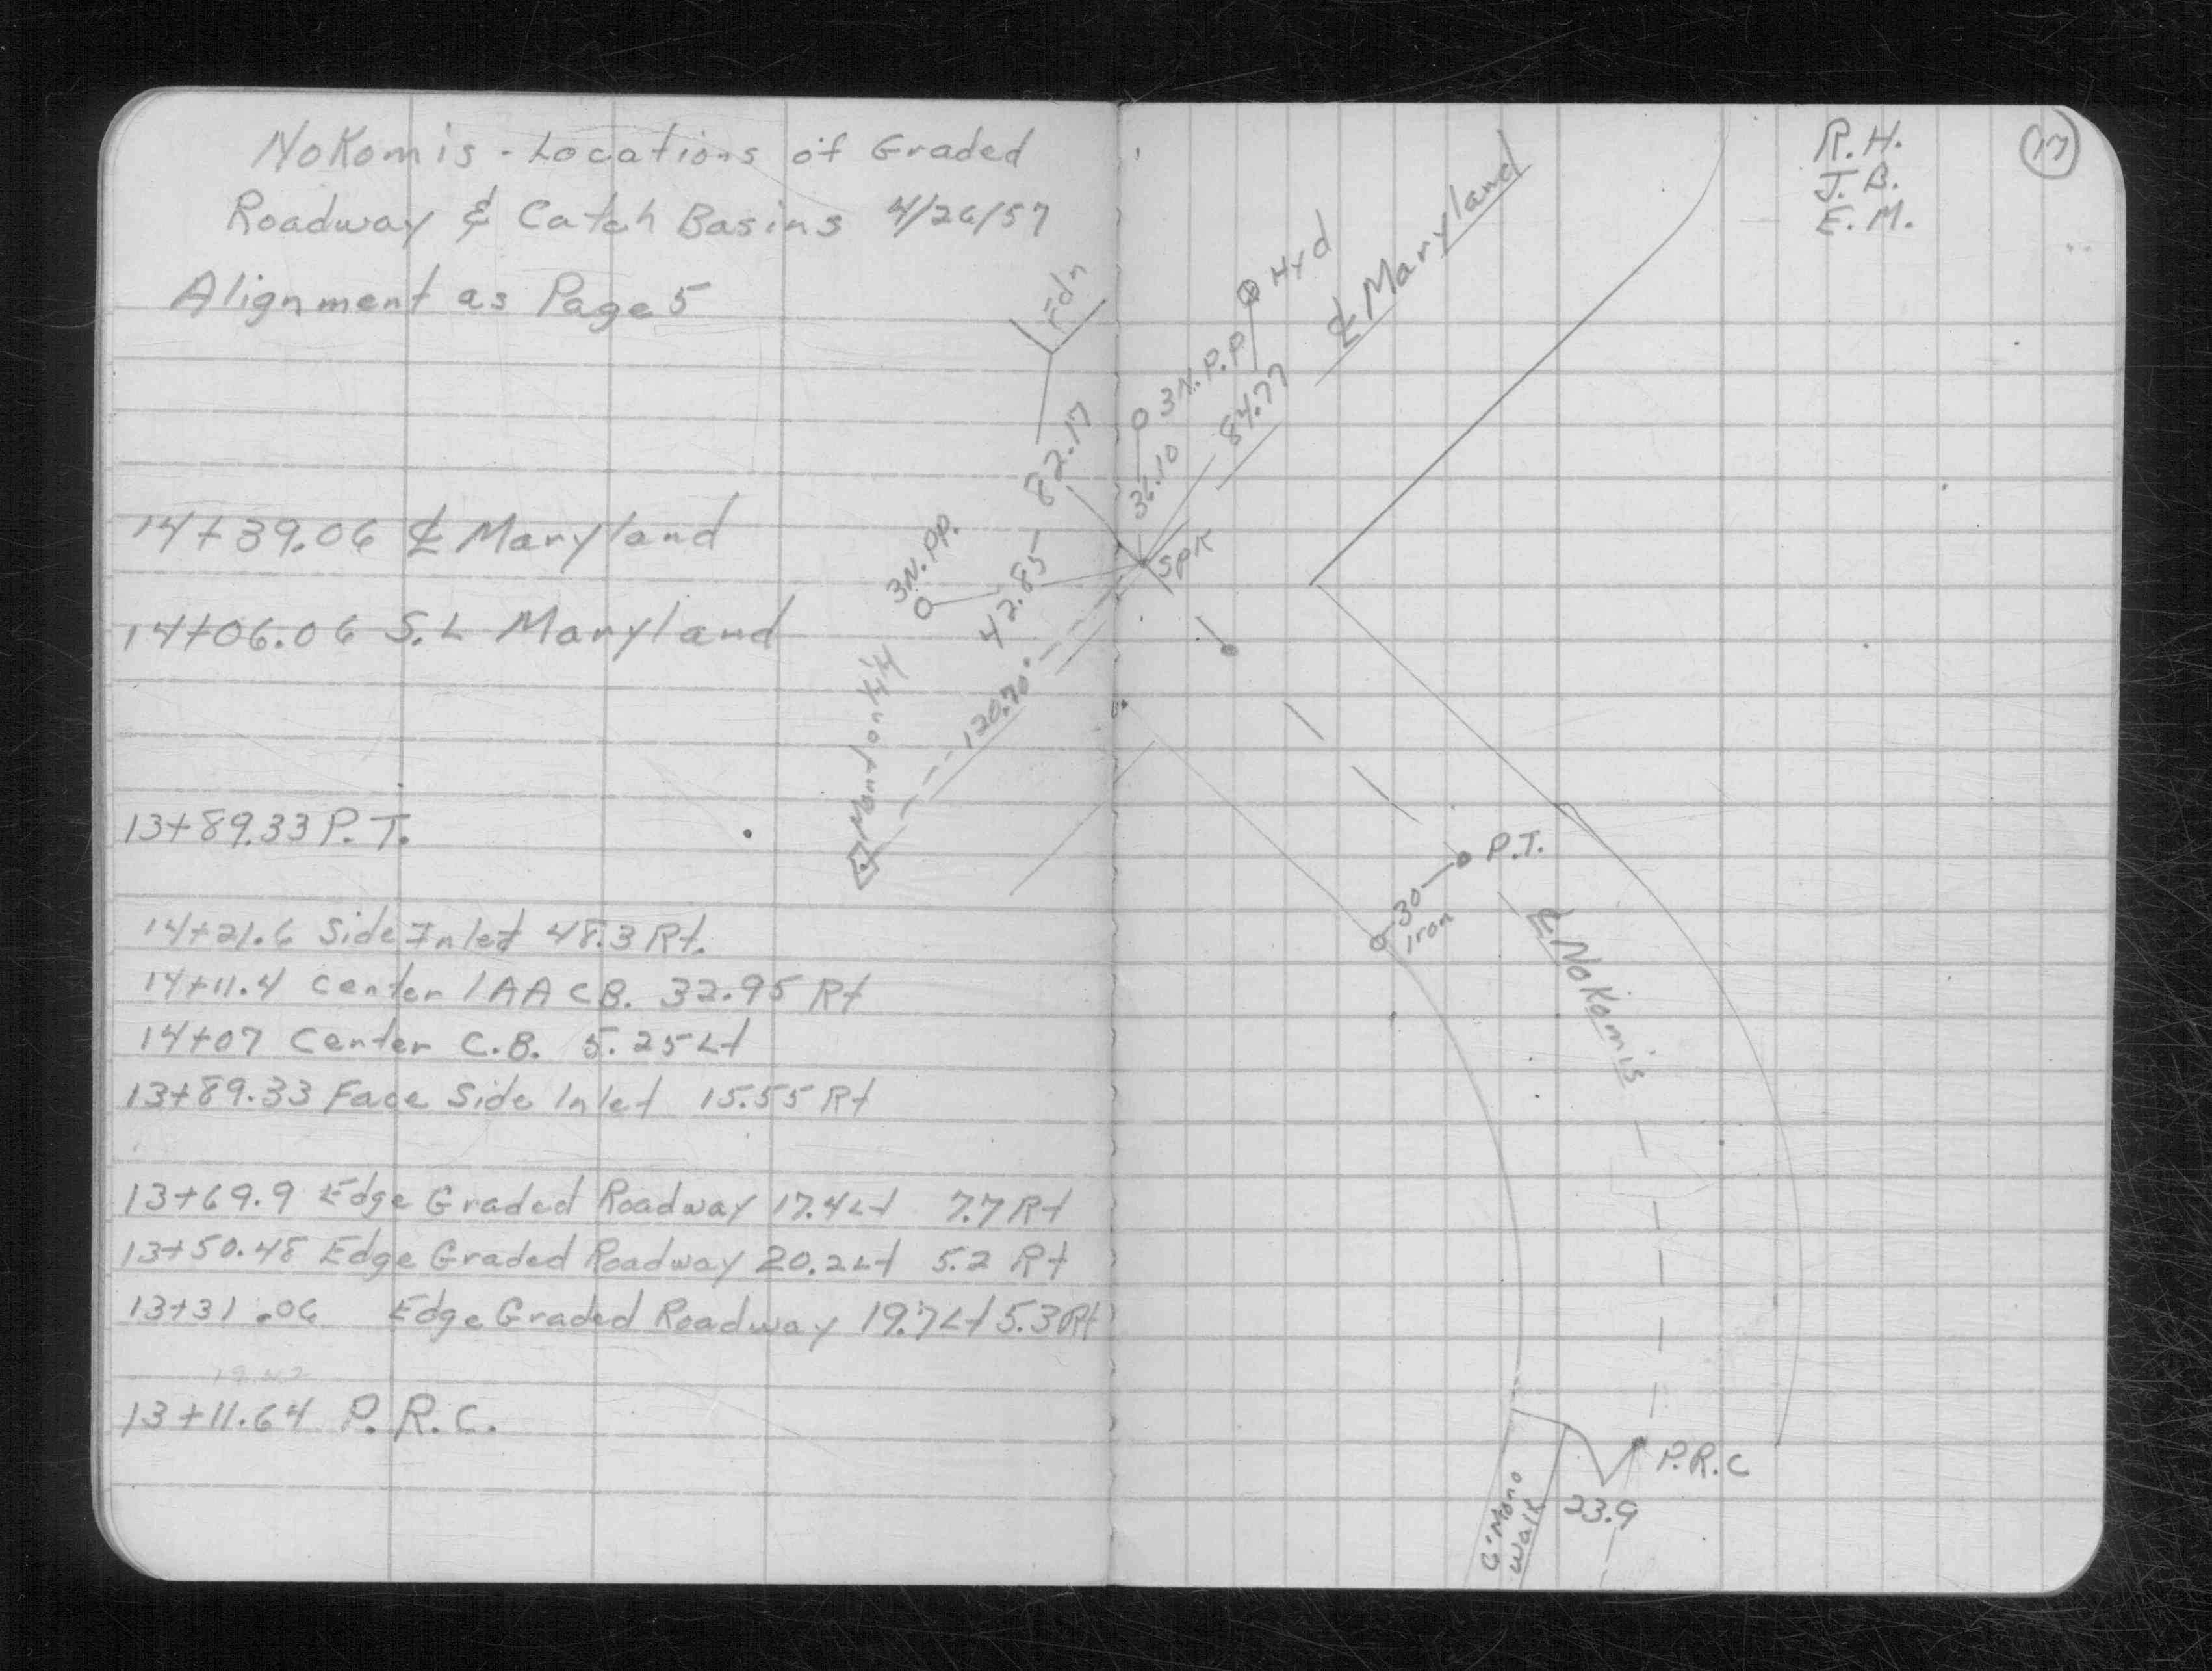 Nokomis - Locations of Graded
Roadway & Catch Basins 4/26/57
Alignment as Page 5
14+39.06 ℄ Maryland
14+06.06 S.L Maryland
13+89.33 P.T.
14+21.6 Side Inlet 48.3 Rt.
14+11.4 Center 1AA CB. 32.95 Rt
14+07 Center C.B. 5.25 Lt
13+89.33 Face Side Inlet 15.55 Rt
13+69.9 Edge Graded Roadway 17.4 Lt 7.7 Rt
13+50.48 Edge Graded Roadway 20.2 Lt 5.2 Rt
13+31.06 Edge Graded Roadway 19.7 Lt 5.3 Rt
19.42
13+11.64 P.R.C.
82.17
3N.PP.
42.85
120.70
R.H.
J.B.
E.M.
17
Hyd
℄ Maryland
3N.P.P
84.77
36.10
SPK
P.T.
30
Iron
℄ Nokomis
P.R.C
23.9
6' Mono
Walk